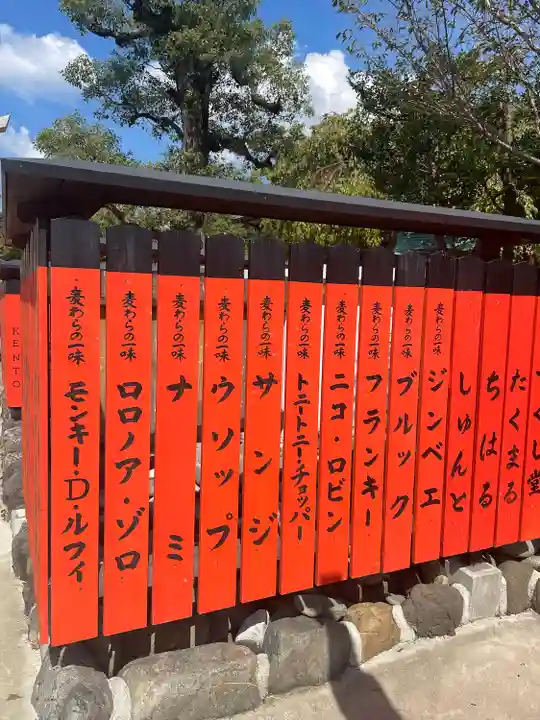 KENTO
麦わらの一味 モンキー・D・ルフィ
麦わらの一味 ロロノア・ゾロ
麦わらの一味 ナミ
麦わらの一味 ウソップ
麦わらの一味 サンジ
麦わらの一味 トニートニー・チョッパー
麦わらの一味 ニコ・ロビン
麦わらの一味 フランキー
麦わらの一味 ブルック
麦わらの一味 ジンベエ
しゅんと
ちはる
たくまる